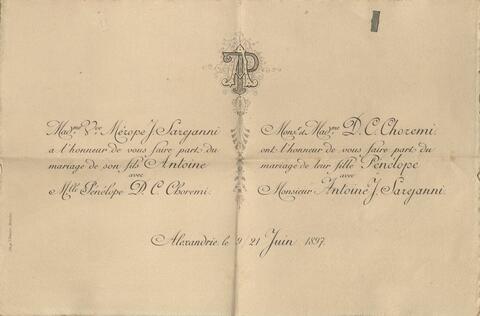 AP
Mad.me V.ve Mérope J Sarganni
a l'honneur de vous faire part du
mariage de son fils Antoine
avec
Mlle Pénélope D. C. Choremi.
Mons.r et Mad.me D. C. Choremi
ont l'honneur de vous faire part du
mariage de leur fille Pénélope
avec
Monsieur Antoine J Sarganni.
Alexandrie le 9/21 Juin 1897.